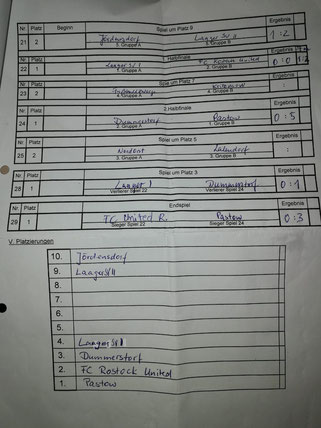 Nr Platz Beginn Spiel um Platz 9 Ergebnis
21 2 Jördensdorf Laager SV II 1:2
5. Gruppe A 5. Gruppe B
Nr Platz Halbfinale
22 1 Laager SV I FC Rostock United 0:0
1. Gruppe A 2. Gruppe B
Nr Platz Spiel um Platz 7 Ergebnis
23 2 :
4. Gruppe A 4. Gruppe B
Nr Platz 2. Halbfinale Ergebnis
24 1 Dummerstorf Pastow 0:5
2. Gruppe A 1. Gruppe B
Nr Platz Spiel um Platz 5 Ergebnis
25 2 :
3. Gruppe A 3. Gruppe B
Nr Platz Spiel um Platz 3 Ergebnis
28 1 Dummerstorf 0:1
Verlierer Spiel 22 Verlierer Spiel 24
Nr Platz Endspiel Ergebnis
29 1 FC United R. Pastow 0:3
Sieger Spiel 22 Sieger Spiel 24
V. Platzierungen
10. Jördensdorf
9. Laager SV II
8.
7.
6.
5.
4. Laager SV I
3. Dummerstorf
2. FC Rostock United
1. Pastow